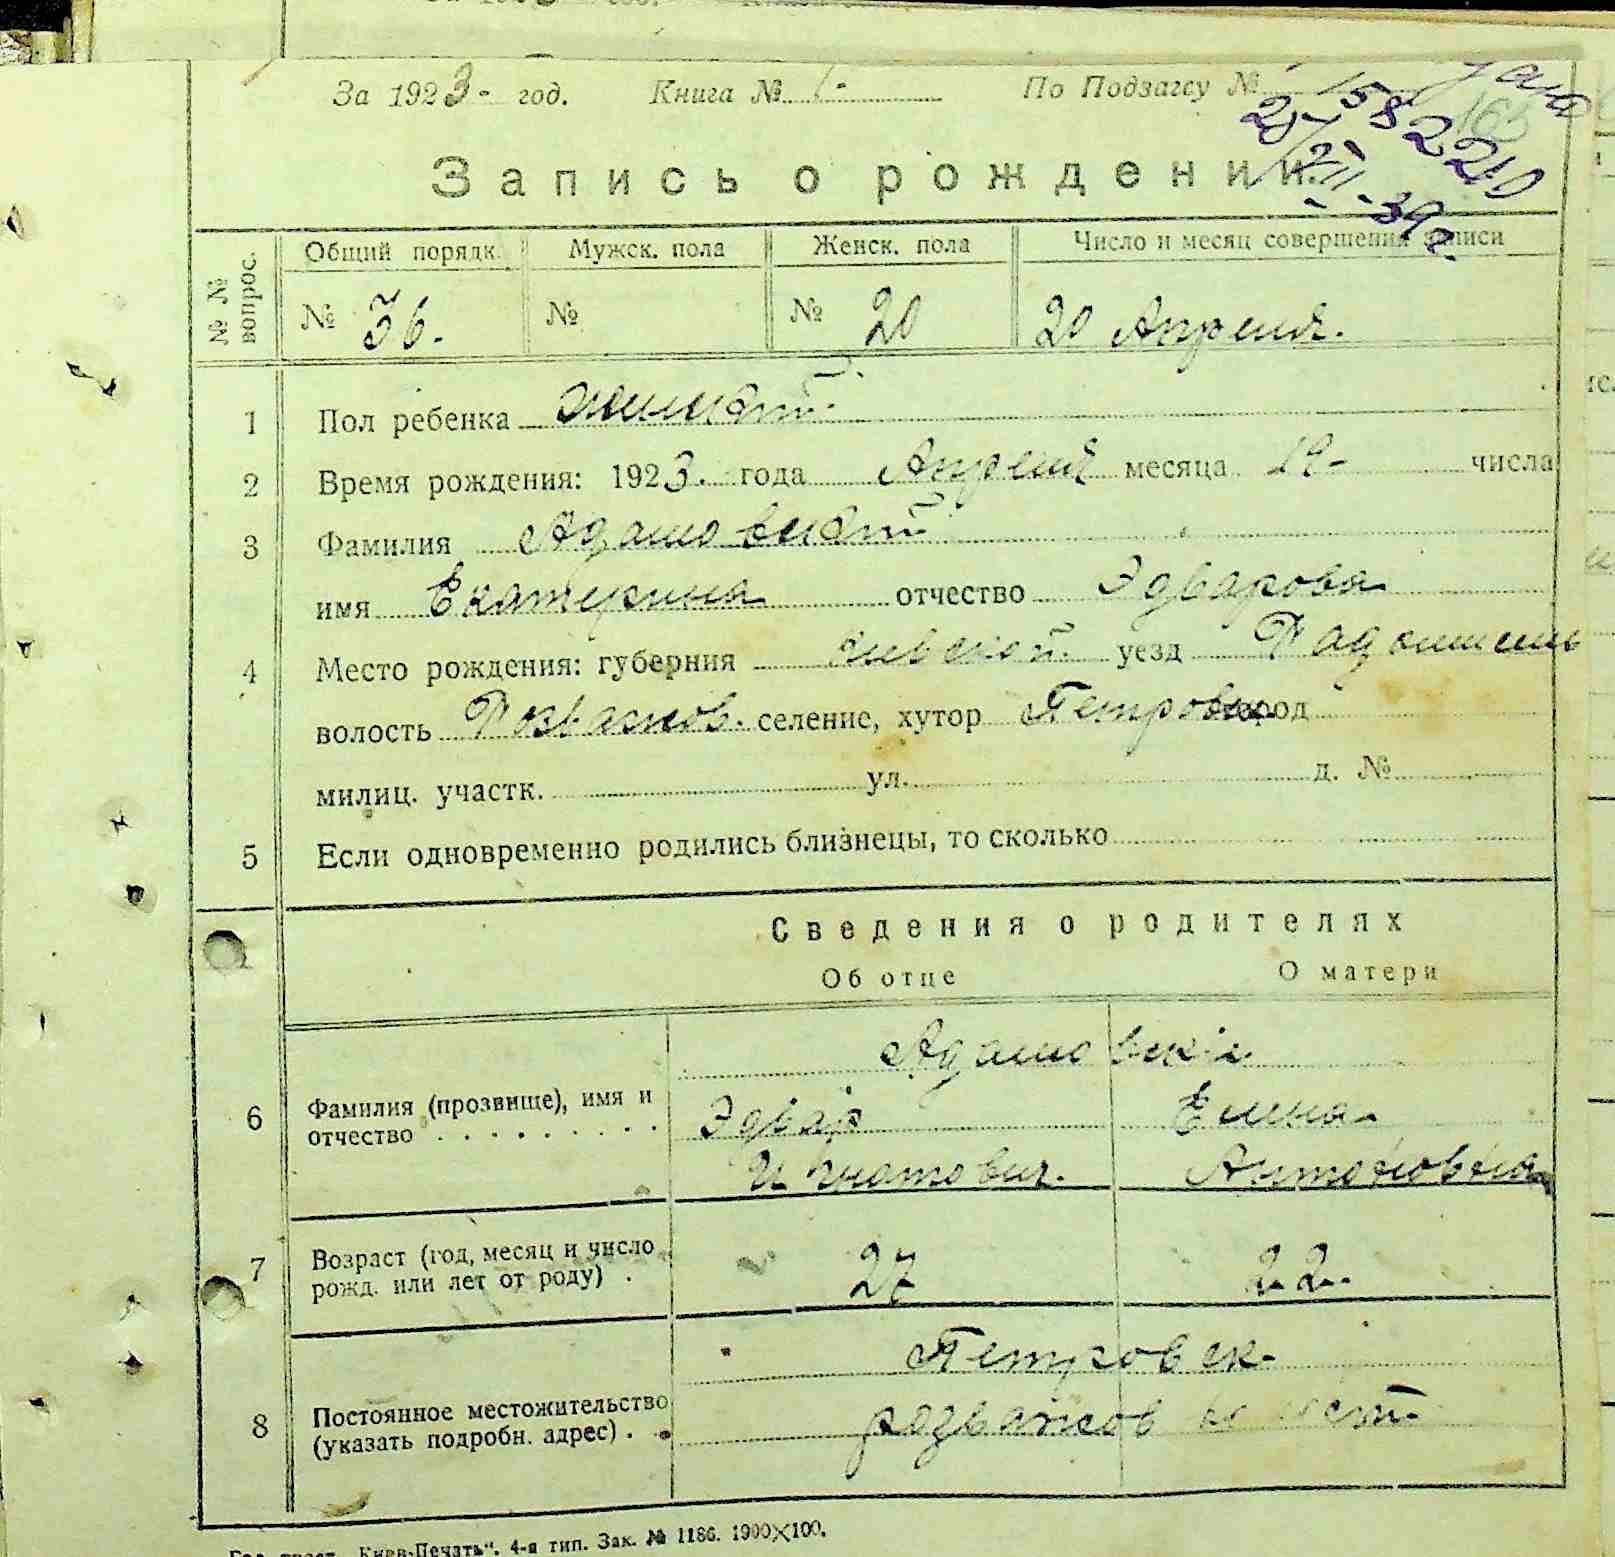 За 1923 - год. Книга № 1 - По Подзагсу №
158 2210
28/XII-39г.
Запись о рождении
№ № вопрос. Общий порядк. Мужск. пола Женск. пола Число и месяц совершения записи
№ 36. № № 20 20 Апреля.
1 Пол ребенка женский
2 Время рождения: 1923. года Апреля месяца 19 - числа
3 Фамилия Адамовский
имя Екатерина отчество Эдварова
4 Место рождения: губерния киевской уезд Радомысль
волость Розважов. селение, хутор Петровск город
милиц. участк. ул. д. №
5 Если одновременно родились близнецы, то сколько
Сведения о родителях
Об отце О матери
Адамовск
6 Фамилия (прозвище), имя и отчество Эдвар Елена
Игнатович. Антоновна
7 Возраст (год, месяц и число рожд. или лет от роду) . 27 22.
Петровск
8 Постоянное местожительство (указать подробн. адрес) . розважов
„Киев-Печать“. 4-я тип. Зак. № 1186. 1900×100.